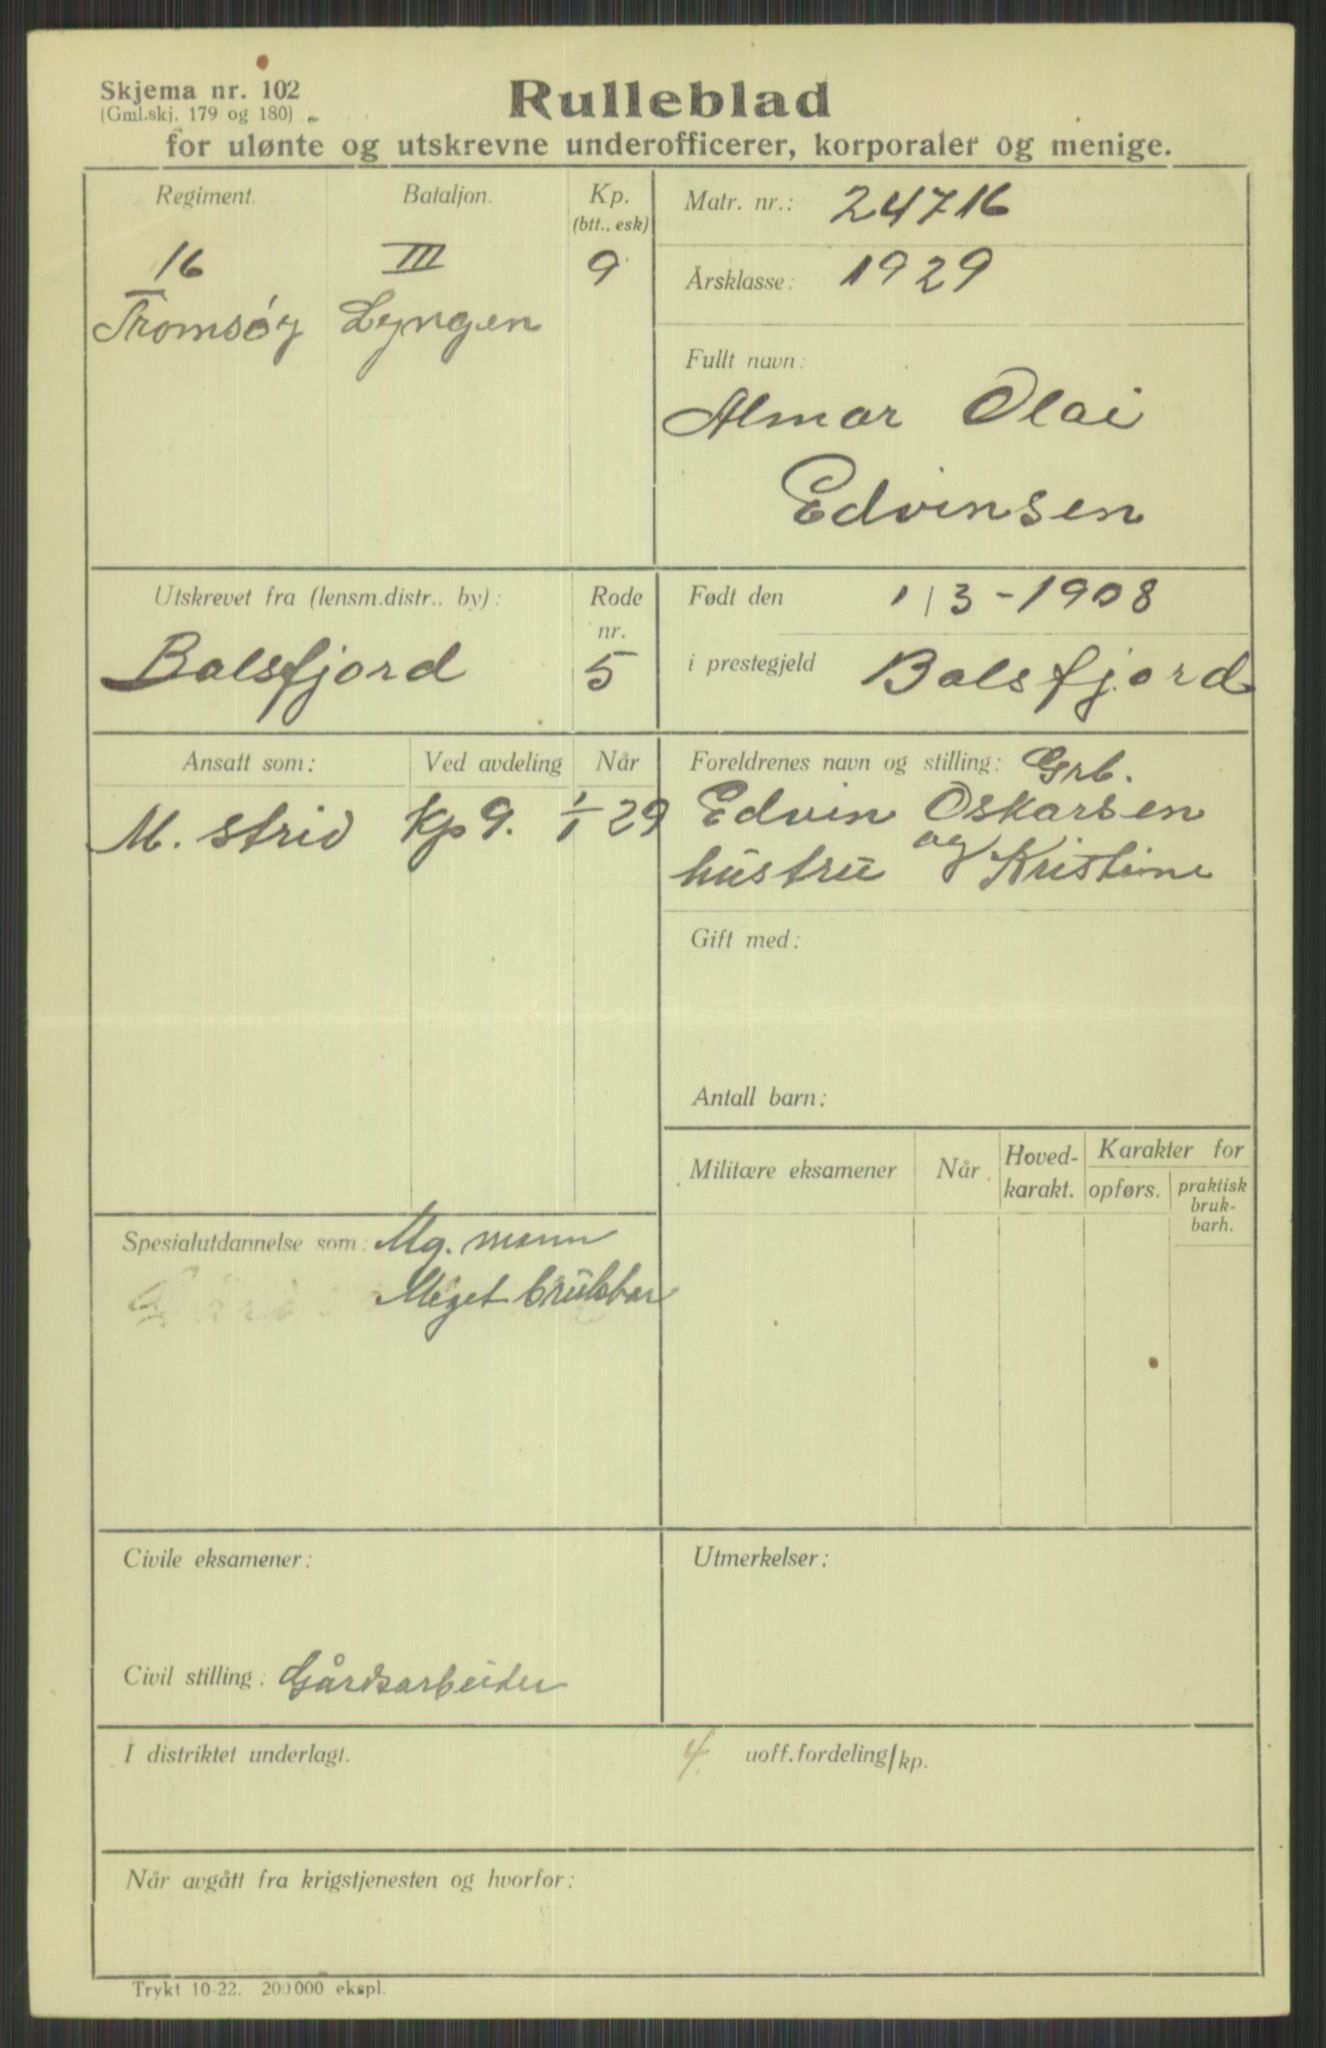 Skjema nr. 102
(Gml.skj. 179 og 180)
Rulleblad
for ulønte og utskrevne underofficerer, korporaler og menige.
Regiment. Bataljon. Kp. (btt., esk)
16 III 9
Tromsøy Lyngen
Matr. nr.: 24716
Årsklasse: 1929
Fullt navn:
Almar Olai
Edvinsen
Utskrevet fra (lensm.distr.. by): Rode nr.
Balsfjord 5
Født den 1/3-1908
i prestegjeld Balsfjord
Ansatt som: Ved avdeling Når
M. strid Kp 9. 1/1 29
Foreldrenes navn og stilling: Grb.
Edvin Oskarsen
og
hustru Kristine
Gift med:
Antall barn:
Militære eksamener Når Hoved-karakt. Karakter for
opførs. praktisk bruk-barh.
Spesialutdannelse som: Mg. mann
Meget brukbar
Civile eksamener:
Civil stilling: Gårdsarbeider
Utmerkelser:
I distriktet underlagt. 4. uoff.fordeling/kp.
Når avgått fra krigstjenesten og hvorfor:
Trykt 10-22. 200 000 ekspl.